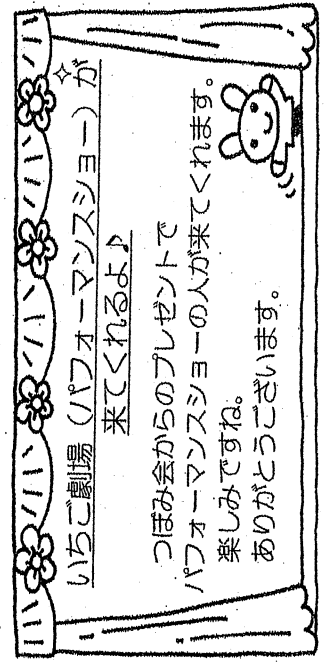 いちご劇場（パフォーマンスショー）が
来てくれるよ♪
つぼみ会からのプレゼントで
パフォーマンスショーの人が来てくれます。
楽しみですね。
ありがとうございます。